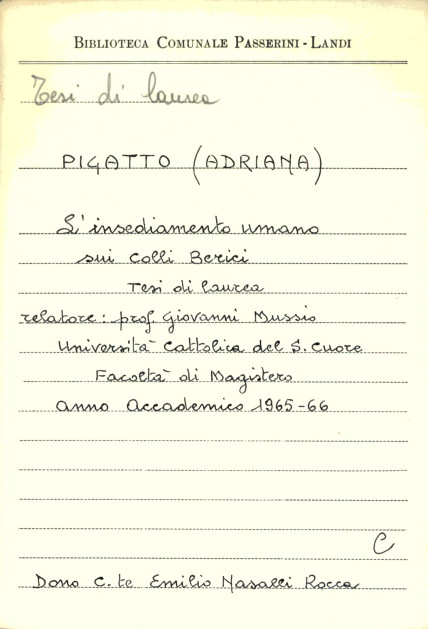 BIBLIOTECA COMUNALE PASSERINI-LANDI
Tesi di laurea
PIGATTO (ADRIANA)
L'insediamento umano
sui Colli Berici
Tesi di laurea
relatore: prof. Giovanni Mussio
Università Cattolica del S. Cuore
Facoltà di Magistero
anno Accademico 1965-66
C
Dono C.te Emilio Nasalli Rocca